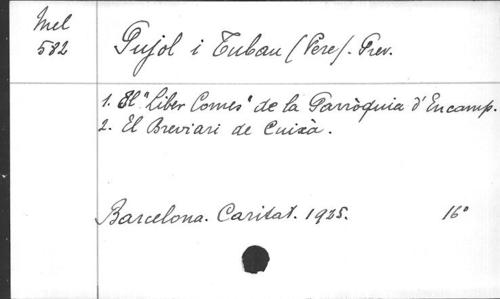 Mel
582
Pujol i Tubau (Pere). Prev.
1. El "Liber Comes" de la Parròquia d'Encamp.
2. El Breviari de Cuixà.
Barcelona. Caritat. 1925. 16º